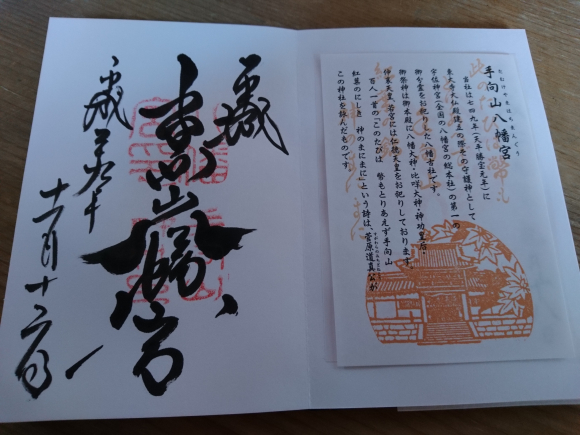 手向山八幡宮
たむけやまはちまんぐう
当社は七四九年(天平勝宝元年)に
東大寺大仏殿建立の際その守護神として
宇佐神宮(全国の八幡宮の総本社)の第一の
御分霊をお祀りした八幡古社です。
御祭神は御本殿に八幡大神・比咩大神・神功皇后・
仲哀天皇、若宮には仁徳天皇をお祀りしております
百人一首の「このたびは 幣もとりあえず手向山
紅葉のにしき 神のまにまに」という詩は、菅原道真公が
この神社を詠んだものです。
平城
手向山八幡宮
平成
十一月十六日